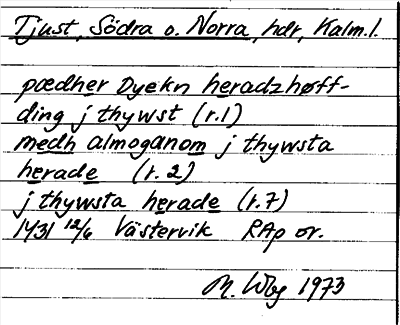 Tjust, Södra o. Norra, hdr, Kalm.l.
pædher Dyekn heradzhøff-
ding j thywst (r.1)
medh almoganom j thywsta
herade (r. 2)
j thywsta herade (r.7)
1431 12/6 Västervik RAp or.
M. Wbg 1973